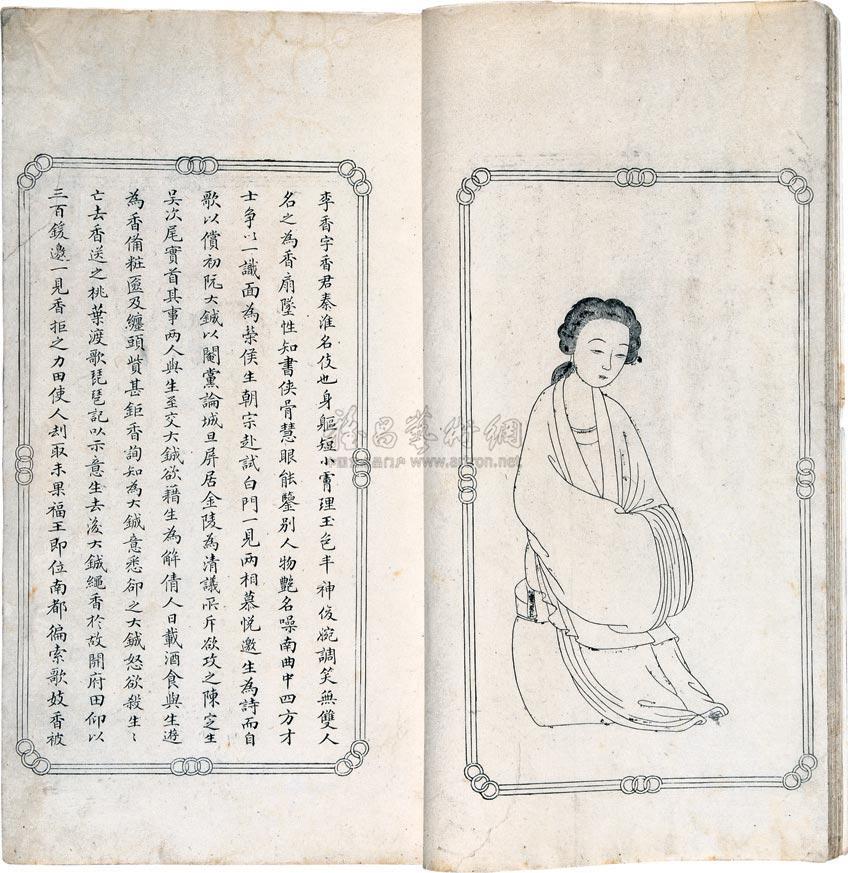 李香字香君秦淮名伎也身軀短小膚理玉色丰神俊婉調笑無雙人
名之為香扇墜性知書俠骨慧眼能鑒別人物艷名噪南曲中四方才
士爭以一識面為榮侯生朝宗赴試白門一見兩相慕悅邀生為詩而自
歌以償初阮大鋮以閹黨論城旦屏居金陵為清議所斥欲攻之陳定生
吳次尾實首其事兩人與生至交大鋮欲藉生為解倩人日載酒食與生遊
為香備粧匳及纏頭貲甚鉅香詢知為大鋮意悉卻之大鋮怒欲殺生〻
亡去香送之桃葉渡歌琵琶記以示意生去後大鋮繩香於故開府田仰以
三百鍰邀一見香拒之力田使人刦取未果福王即位南都徧索歌妓香被
雅昌藝術網
中国艺术品门户 www.artron.net